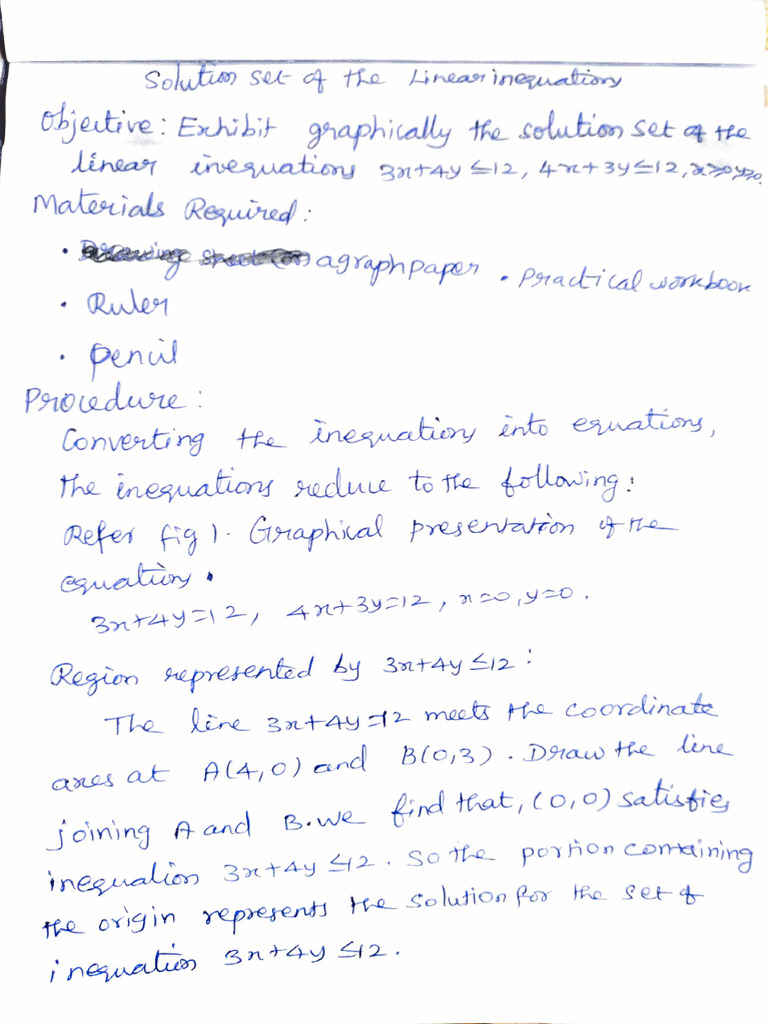 Solution set of the Linear inequations
Objective: Exhibit graphically the solution set of the
linear inequations 3x+4y≤12, 4x+3y≤12, x≥0 y≥0.
Materials Required:
• a graph paper • Practical workbook
• Ruler
• pencil
Procedure:
Converting the inequations into equations,
the inequations reduce to the following:
Refer fig 1. Graphical presentation of the
equations.
3x+4y=12, 4x+3y=12, x=0, y=0.
Region represented by 3x+4y≤12:
The line 3x+4y=12 meets the coordinate
axes at A(4,0) and B(0,3). Draw the line
joining A and B. We find that, (0,0) satisfies
inequation 3x+4y≤12. So the portion containing
the origin represents the solution for the set of
inequation 3x+4y≤12.